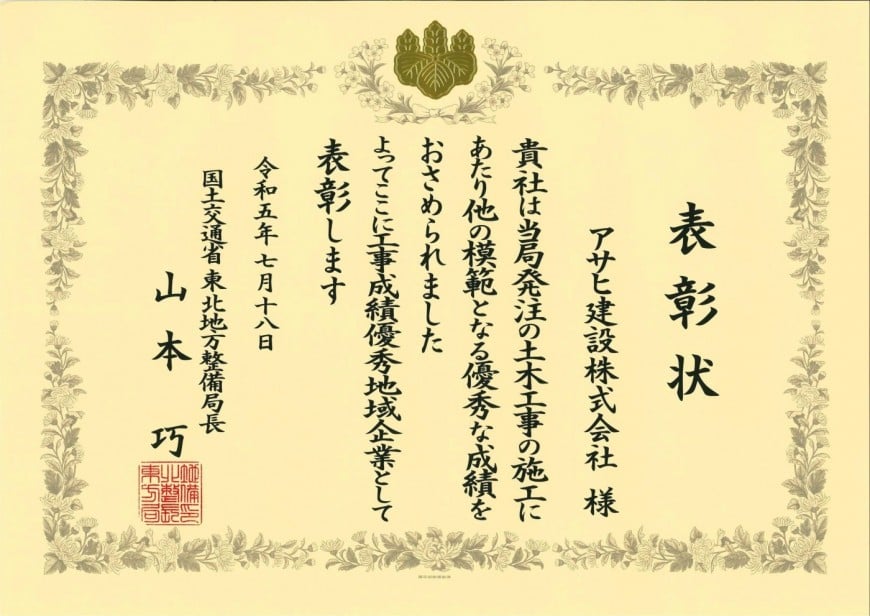 表彰状
アサヒ建設株式会社 様
貴社は当局発注の土木工事の施工に
あたり他の模範となる優秀な成績を
おさめられました
よってここに工事成績優秀地域企業として
表彰します
令和五年七月十八日
国土交通省 東北地方整備局長
山本 巧